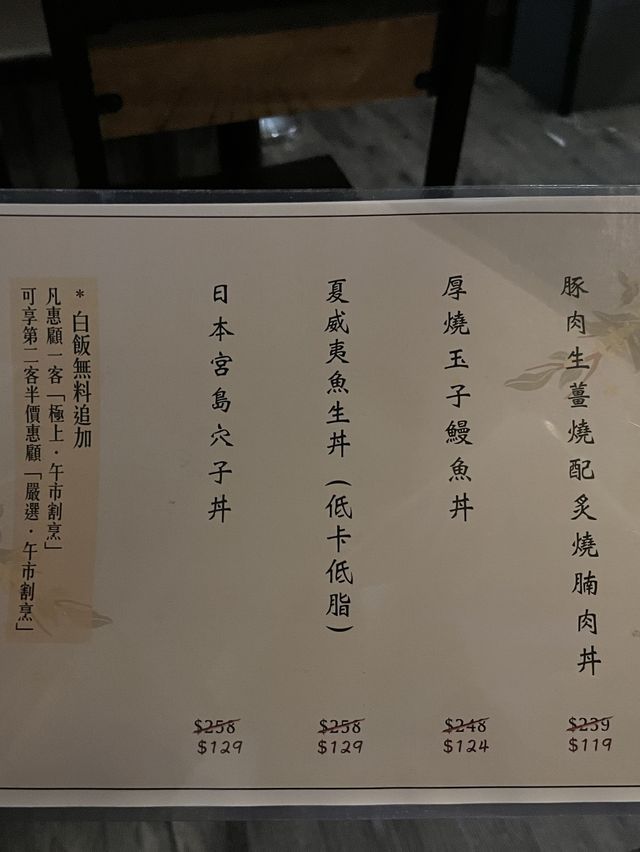 豚肉生薑燒配炙燒腩肉丼
$239
$119
厚燒玉子鰻魚丼
$248
$124
夏威夷魚生丼(低卡低脂)
$258
$129
日本宮島穴子丼
$258
$129
*白飯無料追加
凡惠顧一客「極上·午市割烹」
可享第二客半價惠顧「嚴選·午市割烹」